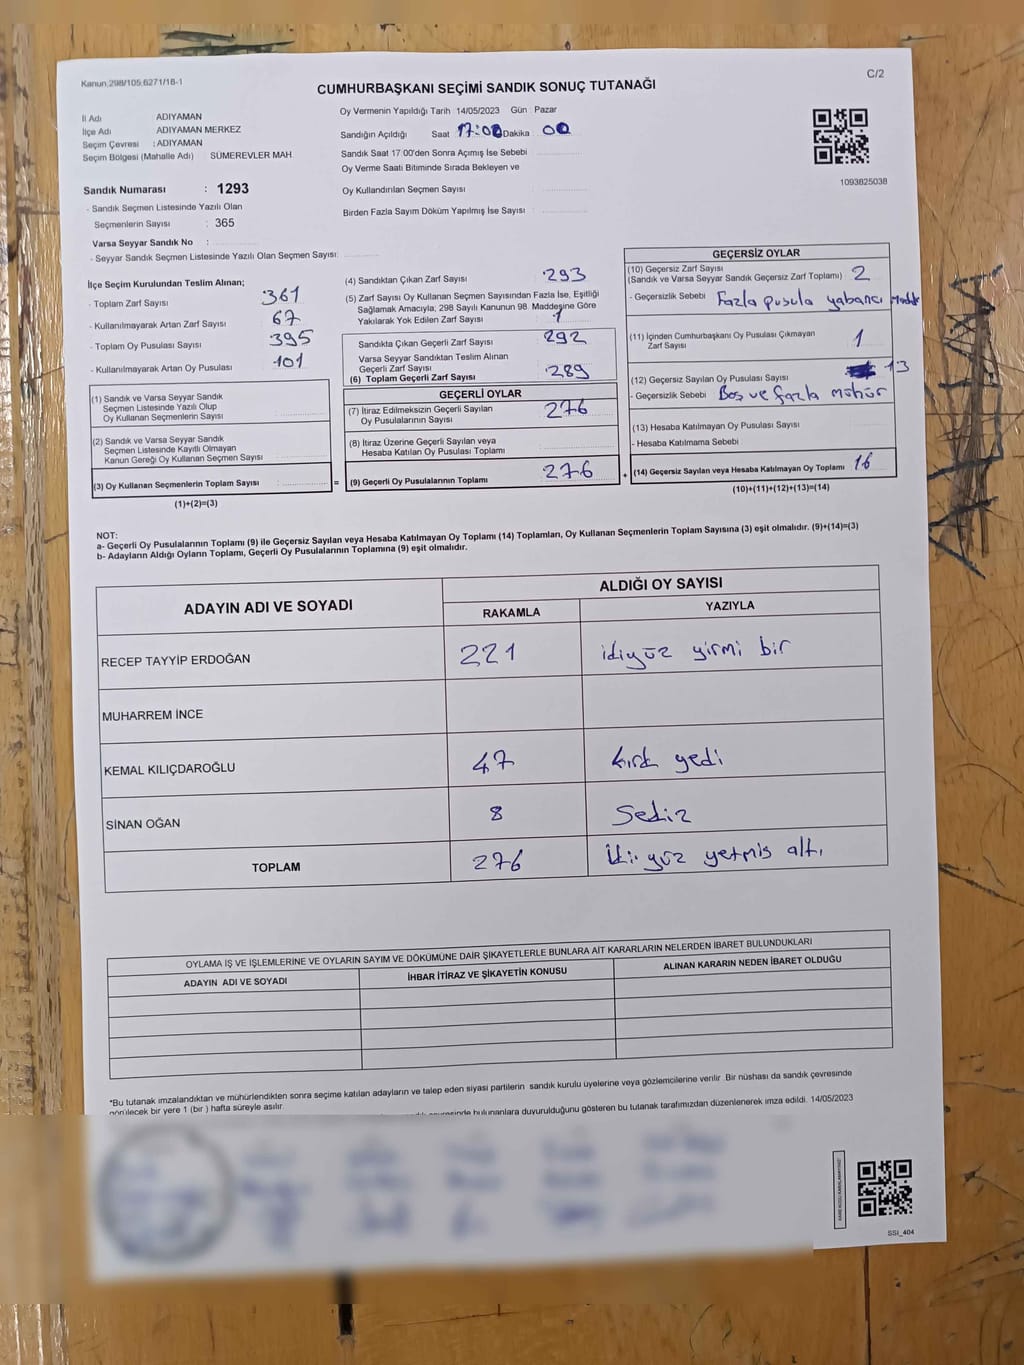 Kanun:298/105,6271/18-1
C/2
CUMHURBAŞKANI SEÇİMİ SANDIK SONUÇ TUTANAĞI
İl Adı ADIYAMAN
İlçe Adı ADIYAMAN MERKEZ
Seçim Çevresi : ADIYAMAN
Seçim Bölgesi (Mahalle Adı) SÜMEREVLER MAH.
Oy Vermenin Yapıldığı Tarih 14/05/2023 Gün : Pazar
Sandığın Açıldığı Saat 17:00 Dakika : 00
Sandık Saat 17:00'den Sonra Açımış İse Sebebi
Oy Verme Saati Bitiminde Sırada Bekleyen ve
Oy Kullandırılan Seçmen Sayısı
Birden Fazla Sayım Döküm Yapılmış İse Sayısı
1093825038
Sandık Numarası : 1293
- Sandık Seçmen Listesinde Yazılı Olan
Seçmenlerin Sayısı : 365
Varsa Seyyar Sandık No :
- Seyyar Sandık Seçmen Listesinde Yazılı Olan Seçmen Sayısı:
İlçe Seçim Kurulundan Teslim Alınan;
- Toplam Zarf Sayısı 361
- Kullanılmayarak Artan Zarf Sayısı 67
- Toplam Oy Pusulası Sayısı 395
- Kullanılmayarak Artan Oy Pusulası 101
(1) Sandık ve Varsa Seyyar Sandık
Seçmen Listesinde Yazılı Olup
Oy Kullanan Seçmenlerin Sayısı
(2) Sandık ve Varsa Seyyar Sandık
Seçmen Listesinde Kayıtlı Olmayan
Kanun Gereği Oy Kullanan Seçmen Sayısı
(3) Oy Kullanan Seçmenlerin Toplam Sayısı =
(1)+(2)=(3)
(4) Sandıktan Çıkan Zarf Sayısı 293
(5) Zarf Sayısı Oy Kullanan Seçmen Sayısından Fazla İse, Eşitliği
Sağlamak Amacıyla, 298 Sayılı Kanunun 98. Maddesine Göre
Yakılarak Yok Edilen Zarf Sayısı 1
Sandıkta Çıkan Geçerli Zarf Sayısı 292
Varsa Seyyar Sandıktan Teslim Alınan
Geçerli Zarf Sayısı
(6) Toplam Geçerli Zarf Sayısı 289
GEÇERLİ OYLAR
(7) İtiraz Edilmeksizin Geçerli Sayılan
Oy Pusulalarının Sayısı 276
(8) İtiraz Üzerine Geçerli Sayılan veya
Hesaba Katılan Oy Pusulası Toplamı
(9) Geçerli Oy Pusulalarının Toplamı 276 +
GEÇERSİZ OYLAR
(10) Geçersiz Zarf Sayısı
(Sandık ve Varsa Seyyar Sandık Geçersiz Zarf Toplamı) 2
- Geçersizlik Sebebi Fazla pusula yabancı
(11) İçinden Cumhurbaşkanı Oy Pusulası Çıkmayan
Zarf Sayısı 1
(12) Geçersiz Sayılan Oy Pusulası Sayısı 13
- Geçersizlik Sebebi Boş ve fazla mühür
(13) Hesaba Katılmayan Oy Pusulası Sayısı
- Hesaba Katılmama Sebebi
(14) Geçersiz Sayılan veya Hesaba Katılmayan Oy Toplamı 16
(10)+(11)+(12)+(13)=(14)
NOT:
a- Geçerli Oy Pusulalarının Toplamı (9) ile Geçersiz Sayılan veya Hesaba Katılmayan Oy Toplamı (14) Toplamları, Oy Kullanan Seçmenlerin Toplam Sayısına (3) eşit olmalıdır. (9)+(14)=(3)
b- Adayların Aldığı Oyların Toplamı, Geçerli Oy Pusulalarının Toplamına (9) eşit olmalıdır.
ADAYIN ADI VE SOYADI
ALDIĞI OY SAYISI
RAKAMLA YAZIYLA
RECEP TAYYİP ERDOĞAN 221 ikiyüz yirmi bir
MUHARREM İNCE
KEMAL KILIÇDAROĞLU 47 kırk yedi
SİNAN OĞAN 8 Sekiz
TOPLAM 276 İki yüz yetmiş altı
OYLAMA İŞ VE İŞLEMLERİNE VE OYLARIN SAYIM VE DÖKÜMÜNE DAİR ŞİKAYETLERLE BUNLARA AİT KARARLARIN NELERDEN İBARET BULUNDUKLARI
ADAYIN ADI VE SOYADI
İHBAR İTİRAZ VE ŞİKAYETİN KONUSU
ALINAN KARARIN NEDEN İBARET OLDUĞU
*Bu tutanak imzalandıktan ve mühürlendikten sonra seçime katılan adayların ve talep eden siyasi partilerin sandık kurulu üyelerine veya gözlemcilerine verilir. Bir nüshası da sandık çevresinde
görülecek bir yere 1 (bir) hafta süreyle asılır.
bulunanlara duyurulduğunu gösteren bu tutanak tarafımızdan düzenlenerek imza edildi. 14/05/2023
SSI_404